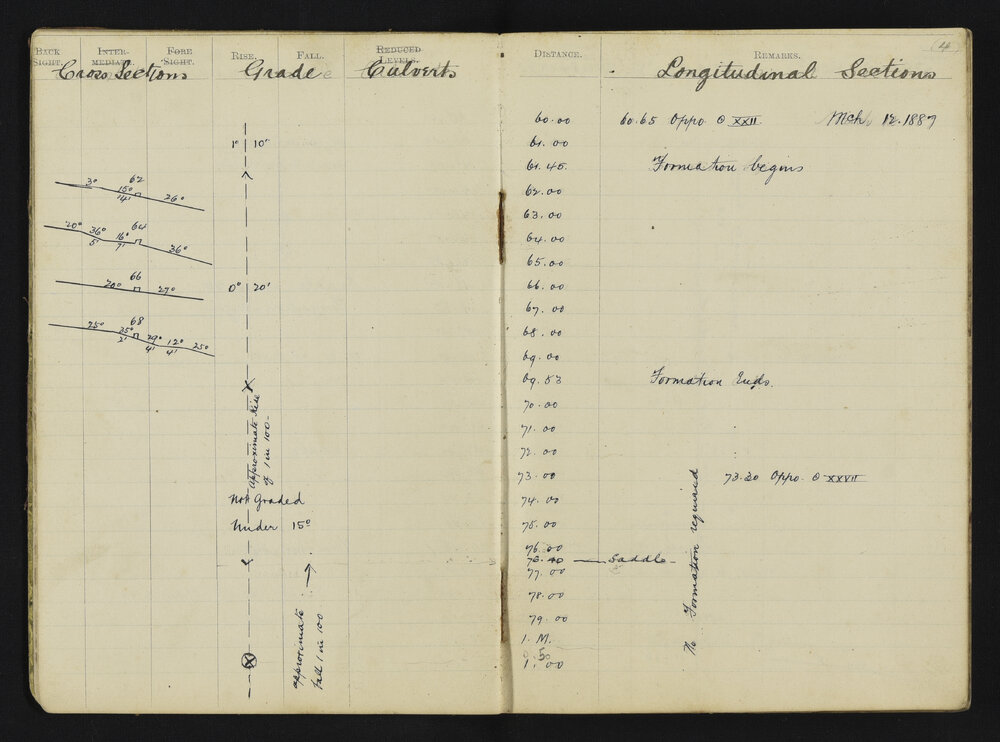 BACK SIGHT. INTER-MEDIATE. FORE SIGHT. RISE. FALL. REDUCED LEVELS.
Cross Sections Grade Culverts
1° 10'
3° 62 15° 14' 26°
20° 36° 5' 16° 7' 64 36°
66 20° 27°
0° 20'
68 25° 25° 2' 29° 4' 12° 4' 25°
Approximate Rise
of 1 in 100
Not Graded
Under 15°
approximate
fall 1 in 100
(4)
DISTANCE. REMARKS.
Longitudinal Sections
60.00 60.65 Oppo. XXII Mch. 12. 1887
61.00
61.45 Formation begins
62.00
63.00
64.00
65.00
66.00
67.00
68.00
69.00
69.53 Formation Ends.
70.00
71.00
72.00
73.00 73.30 Oppo. XXVII
74.00
75.00
76.00
76.40 Saddle
77.00
78.00
79.00
1. M.
5
1.00
No Formation required